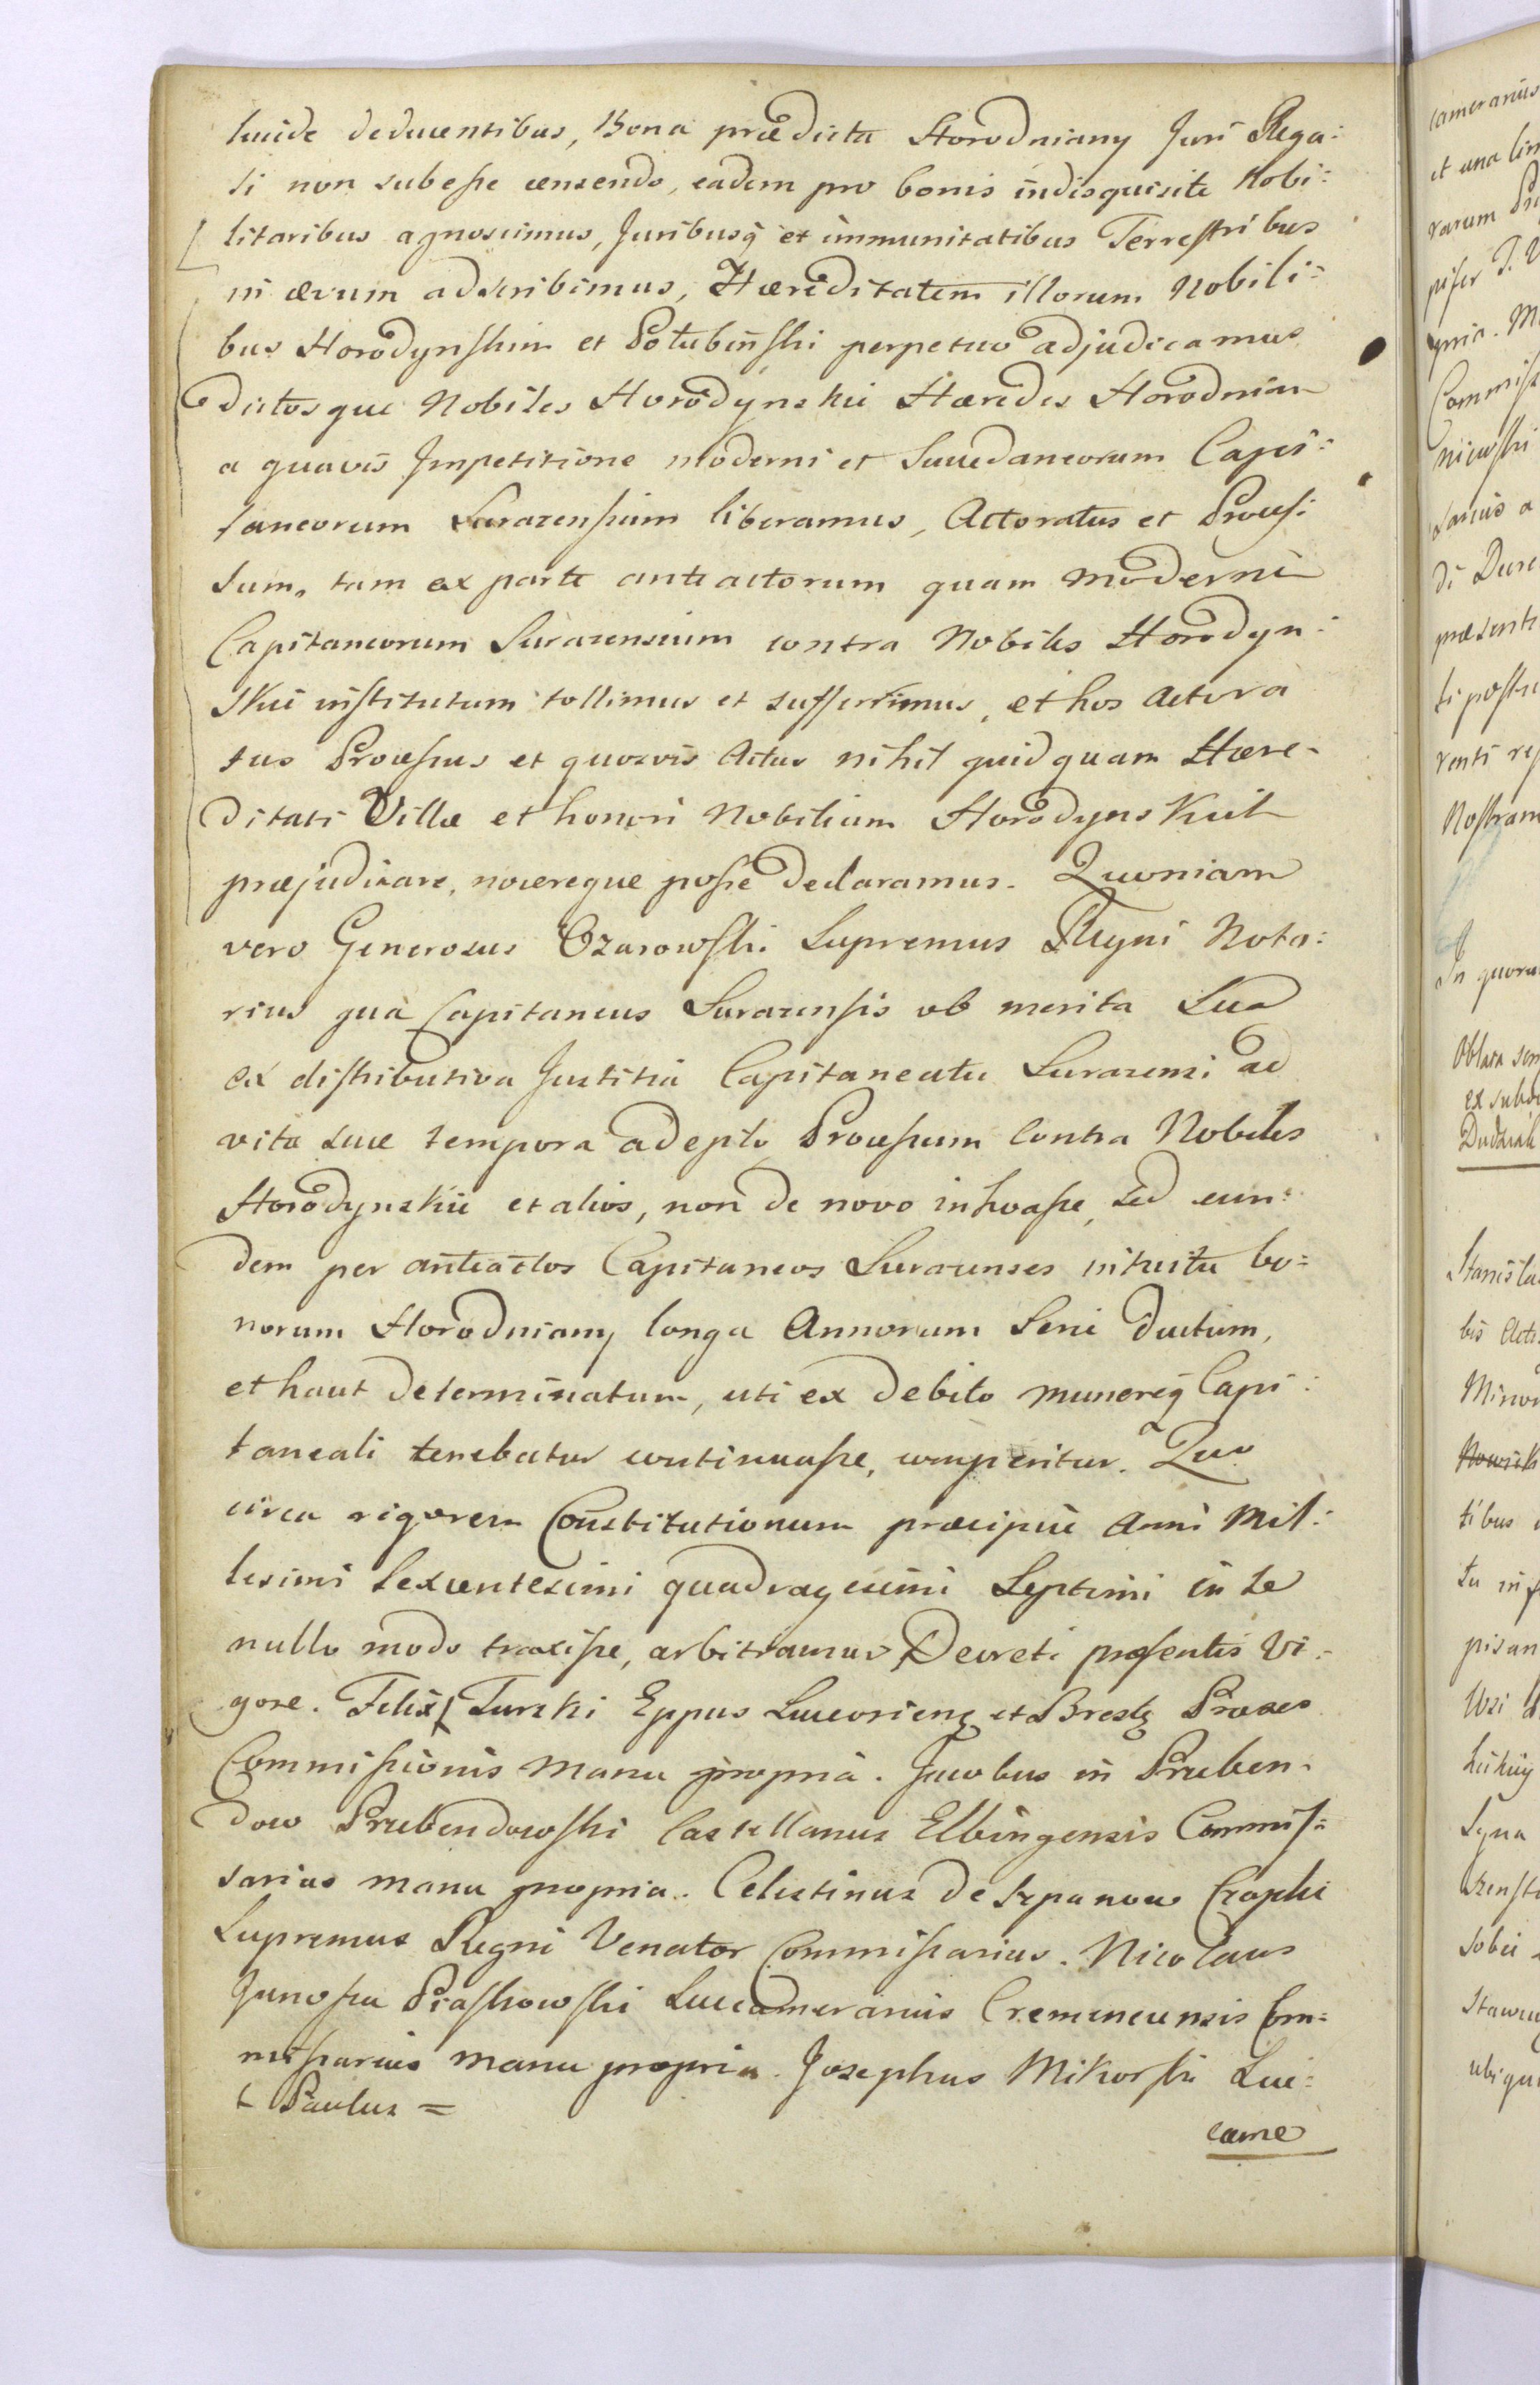 lucide deducentibus, Bona prædicta Horodniany Juri Rega:
li non subesse censendo, eadem pro bonis indisquisite Nobi:
litaribus agnoscimus, Juribusq̃ et immunitatibus Terrestribus
in ævum adscribimus, Hæreditatem illorum Nobili:
bus Horodynskim et Połubiński perpetuo adjudicamus
dictosque Nobiles Horodynskie Hæredes Horodnian
a quavis Impetitione moderni et Succedaneorum Capi:
taneorum Surazensium liberamus, Actoratus et Proces:
sum, tam ex parte anteactorum quam moderni
Capitaneorum Surazensium contra Nobiles Horodyn:
skie institutum tollimus et sufferrimus, et hos Actora
tus Processus et quosvis Actus nihil quidquam Hære-
ditati Villæ et honori Nobilium Horodynskich
præjudicare, nocereque posse declaramus. Quoniam
vero Generosus Ozarowski Supremus Regni Nota:
rius quà Capitaneus Surazensis ob merita Sua
ex distributiva Justitia Capitaneatu Surazensi ad
vitæ suæ tempora adepto Processum contra Nobiles
Horodynskie et alios, non de novo inchoasse, sed eun:
dem per anteactos Capitaneos Surazenses intuitu bo=
norum Horodniany longa Annorum Serie ductum,
et haut determinatum, uti ex debito munereq̃ Capi:
taneali tenebatur continuasse, comperitur. Quo
circa rigorem Constitutionum præcipue Anni Mil:
lesimi Sexcentesimi quadragesimi Septimi in se
nullo modo traxisse, arbitramur, Decreti præsentis Vi:
gore. Felix Turski Eppus Luceoriens et Brest Præses
Commissionis manu propriâ. Jacobus in Prüben-
dow Prubendowski Castellanus Elbingensis Commis=
sarius manu propria. Celestinus de Szpanow Czaplic
Supremus Regni Venator Commissarius. Nicolaus
Junosza Piaskowski Succamerarius Cremenecensis Com=
missarius manu propria. Josephus Mikorski Suc:
Ł Paulus =
came
camerarius
et una
rarum
ypria.
Commiss
niewski
sarius a
di Decre
præsenti
ti postu
venti
Nostram
In quoru
Oblata
ex
Stanisla
bis Acti
tibus
Syna
ubiqu